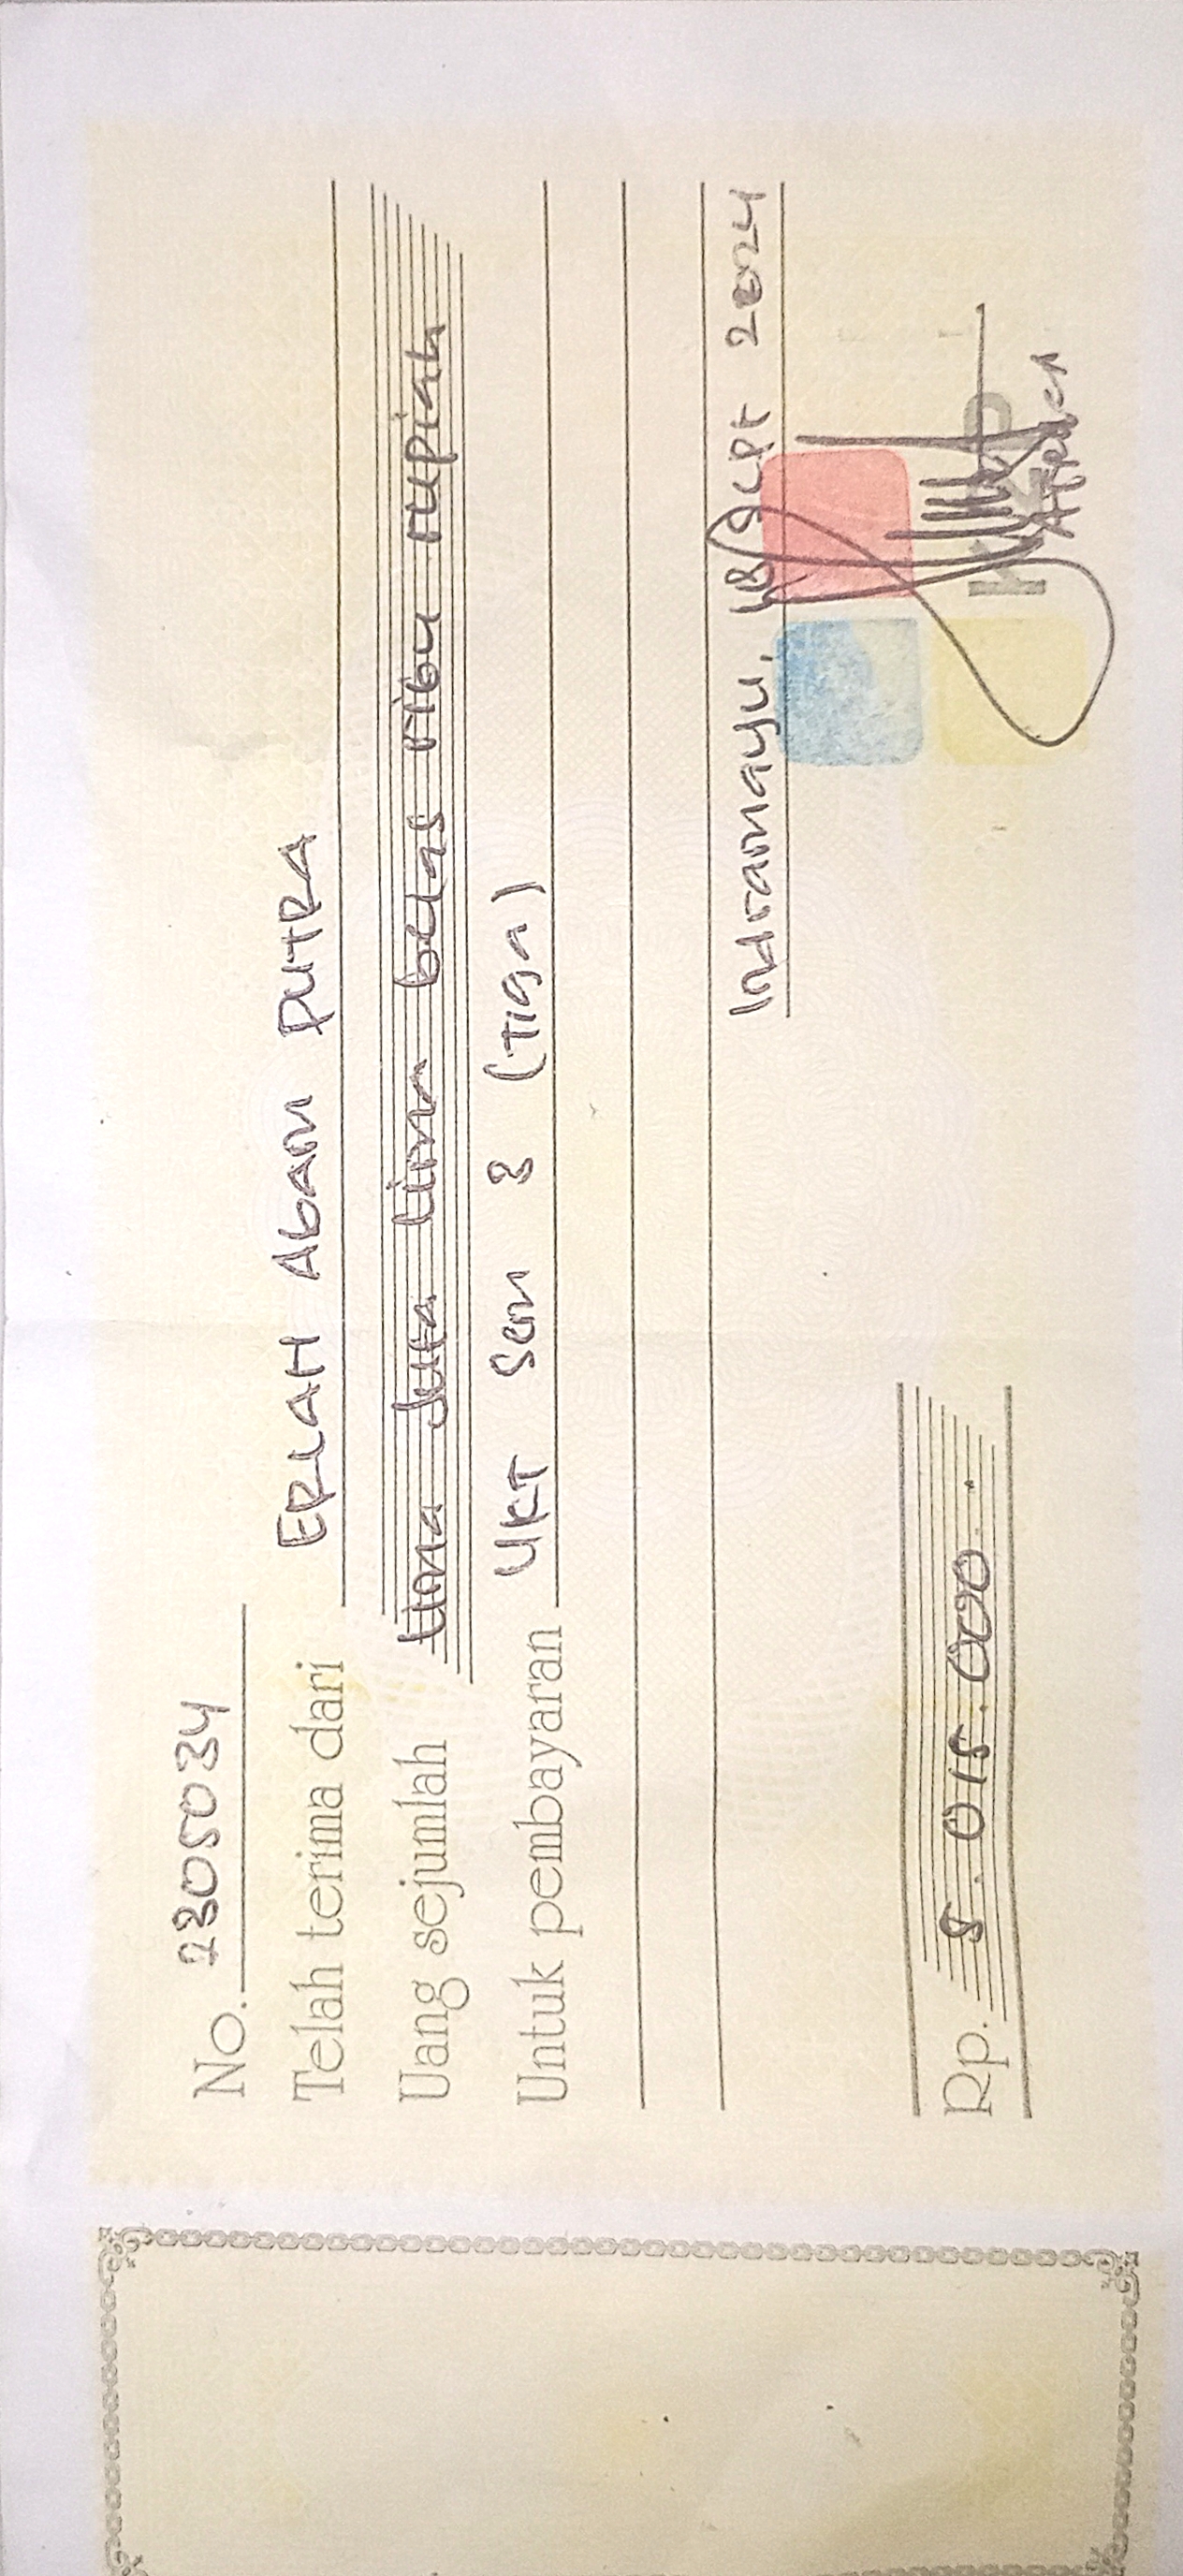 No. 2305034
Telah terima dari ERLAH Abam PUTRA
Uang sejumlah Lima Juta Lima belas ribu rupiah
Untuk pembayaran UKT Sem 3 (Tiga)
Indramayu, 18 Sept 2024
Rp. 5.015.000